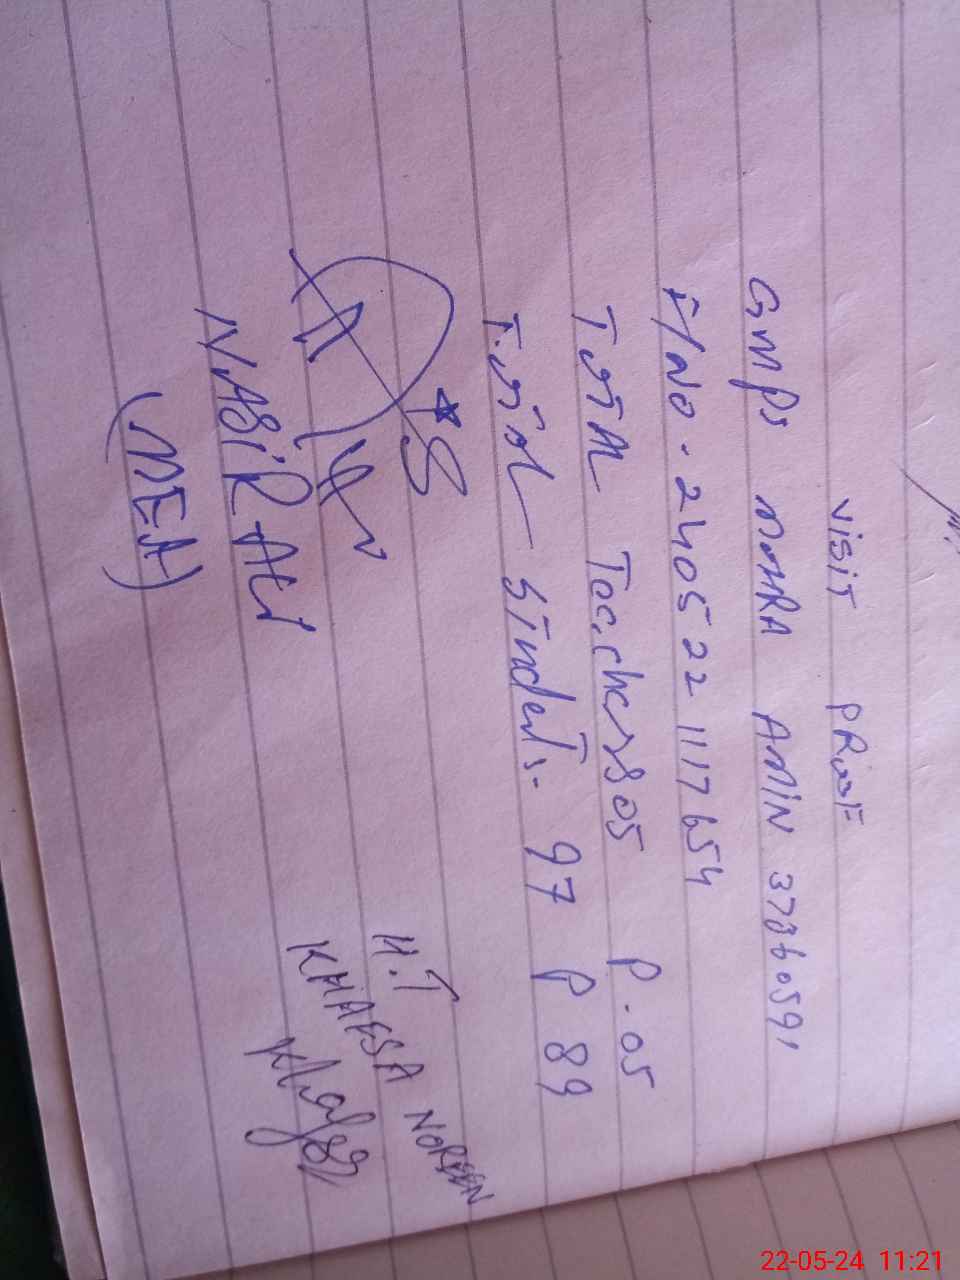 VISIT PRooF
GMPS MOHRA AMIN 37360591
F/No. 240522 1117654
ToTAl Teachers 05 P.05
ToTAl STudeNTs. 97 P 89
H.T
KHAFSA NOREEN
NASiR ALI
(MEA)
22-05-24 11:21